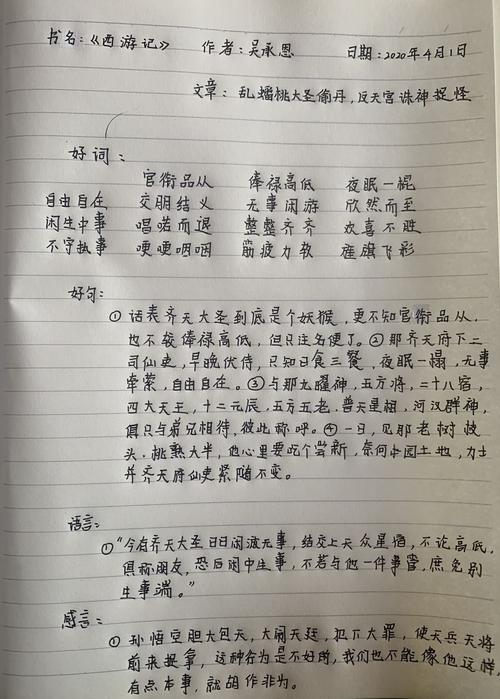 书名:《西游记》 作者:吴承恩 日期:2020年4月1日
文章: 乱蟠桃大圣偷丹,反天宫诛神捉怪
好词:
官衔品从 俸禄高低 夜眠一榻
自由自在 交朋结义 无事闲游 欣然而至
闲生中事 唱喏而退 整整齐齐 欢喜不胜
不守执事 哽哽咽咽 筋疲力软 旌旗飞彩
好句:
①话表齐天大圣到底是个妖猴,更不知官衔品从.
也不较俸禄高低,但只注名便了。②那齐天府下二
司仙吏,早晚伏侍,只知日食三餐,夜眠一榻,无事
牵萦,自由自在。③与那九曜神,五方将,二十八宿,
四大天王,十二元辰,五方五老.普天星相,河汉群神,
俱只与弟兄相待,彼此称呼。④一日,见那老树枝
头.桃熟大半,他心里要吃个尝新,奈何中园土地,力士
并齐天府仙吏紧随不变。
语言:
①“今有齐天大圣日日闲游无事,结交上天众星宿,不论高低.
俱称朋友,恐后闲中生事,不若与他一件事管,庶免别
生事端。”
感言:
①孙悟空胆大包天,大闹天廷,犯下大罪,使天兵天将
前来捉拿,这种行为是不好的,我们也不能像他这样,
有点本事,就胡作非为。